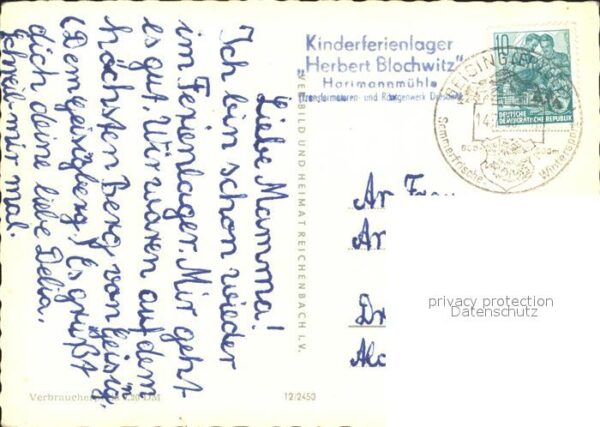 Liebe Mamma!
Ich bin schon wieder
im Ferienlager. Mir geht
es gut. Wir waren auf dem
höchsten Berg von Geising,
(Dem Geisigberg) Es grüßt
dich deine liebe Delia.
Schreib mir mal.
Kinderferienlager
"Herbert Blochwitz"
Hartmannmühle
Transformatoren- und Röntgenwerk Dresden
10
DEUTSCHE
DEMOKRATISCHE REPUBLIK
GEISING
14
Sommerfrische
Wintersport
VEB BILD UND HEIMAT REICHENBACH I. V.
An Frau
privacy protection
Datenschutz
Verbraucherpreis 0,20 DM
12/2450